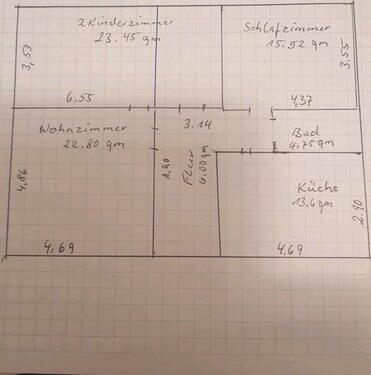 2 Kinderzimmer
23.45 qm
Schlafzimmer
15.52 qm
3,53
3.55
6.55
4,37
Wohnzimmer
22.80 qm
3.14
Bad
4,75 qm
4,86
1,90
Flur
6,00 qm
Küche
13,6 qm
2.90
4,69
4.69